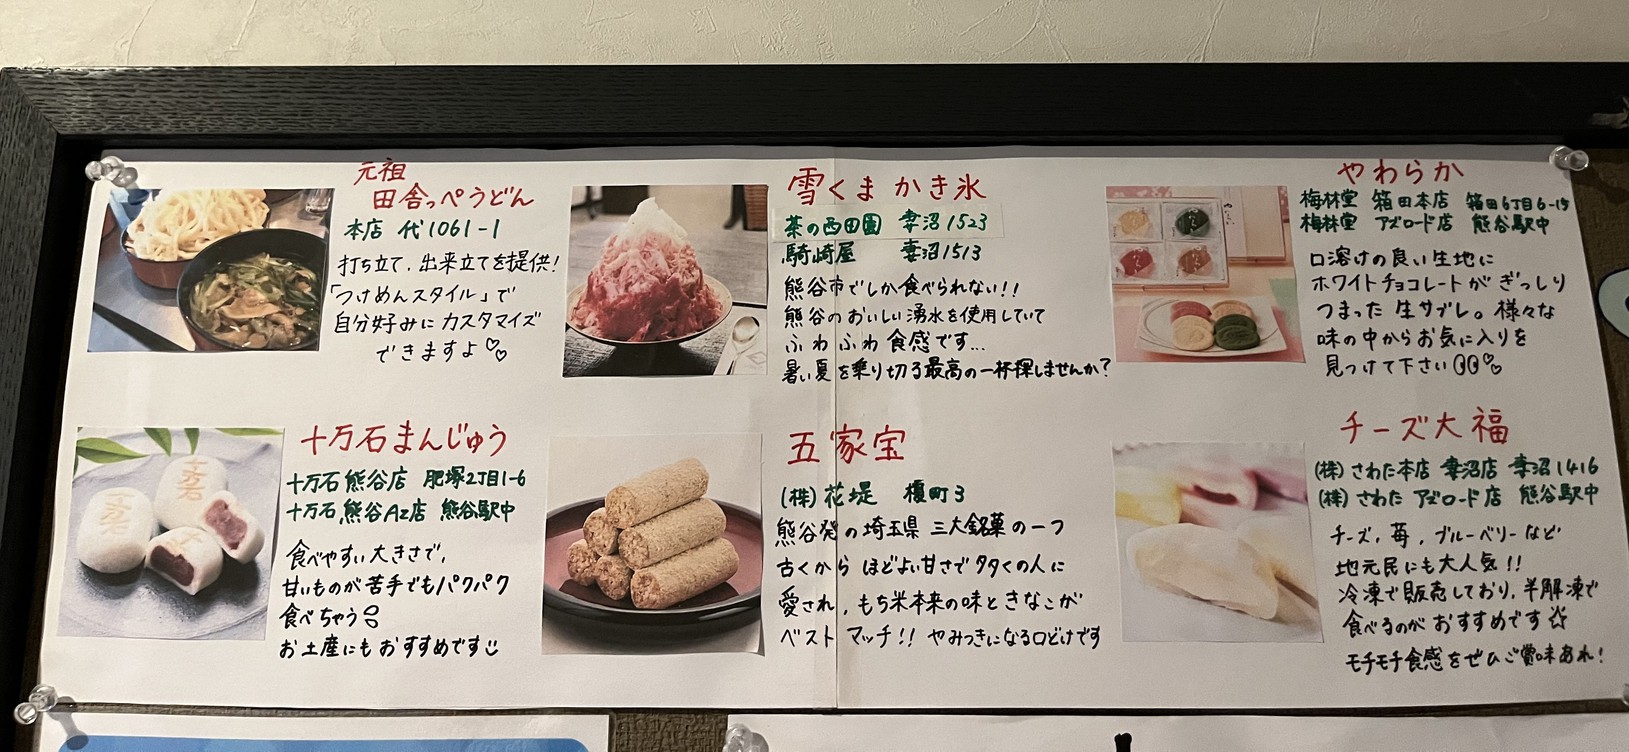 元祖
田舎っぺうどん
本店 代1061-1
打ち立て、出来立てを提供!
「つけめんスタイル」で
自分好みにカスタマイズ
できますよ♡♡
雪くまかき氷
茶の西田園 妻沼1523
騎崎屋 妻沼1513
熊谷市でしか食べられない!!
熊谷のおいしい湧水を使用していて
ふわふわ食感です...
暑い夏を乗り切る最高の一杯探しませんか?
やわらか
梅林堂 箱田本店 箱田6丁目6-15
梅林堂 アズロード店 熊谷駅中
口溶けの良い生地に
ホワイトチョコレートがぎっしり
つまった生サブレ。様々な
味の中からお気に入りを
見つけて下さい
十万石まんじゅう
十万石熊谷店 肥塚2丁目1-6
十万石熊谷Az店 熊谷駅中
食べやすい大きさで、
甘いものが苦手でもパクパク
食べちゃう
お土産にもおすすめです
五家宝
(株)花堤 榎町3
熊谷発の埼玉県三大銘菓の一つ
古くからほどよい甘さで多くの人に
愛され、もち米本来の味ときなこが
ベストマッチ!! やみつきになる口どけです
チーズ大福
(株)さわた本店 妻沼店 妻沼1416
(株)さわた アズロード店 熊谷駅中
チーズ、苺、ブルーベリーなど
地元民にも大人気!!
冷凍で販売しており、半解凍で
食べるのがおすすめです☆
モチモチ食感をぜひご賞味あれ!
十万石
十万石